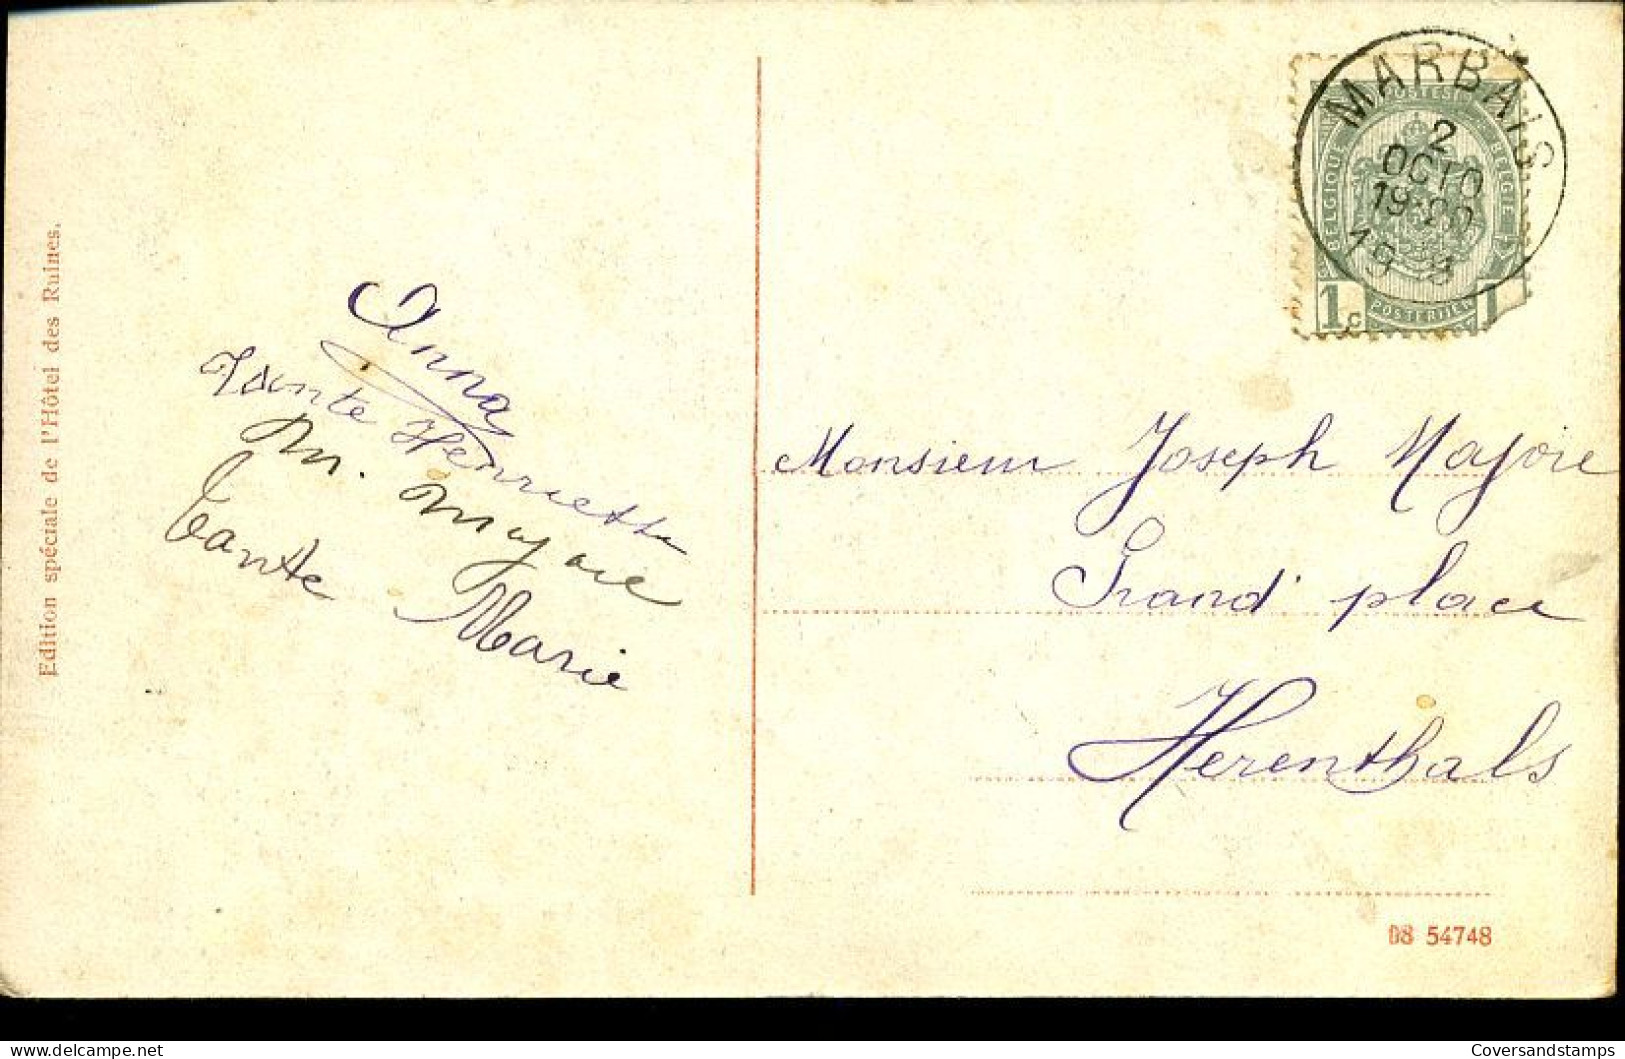 Edition spéciale de l'Hôtel des Ruines.
Anna
Tante Henriette
M. Majoie
Tante Marie
MARBAIS
2
OCTO
19-20
19 8
POSTES
BELGIQUE
BELGIE
1 c
POSTERIJEN
1
Monsieur Joseph Majoie
Grand' place
Herenthals
08 54748
delcampe.net
Coversandstamps